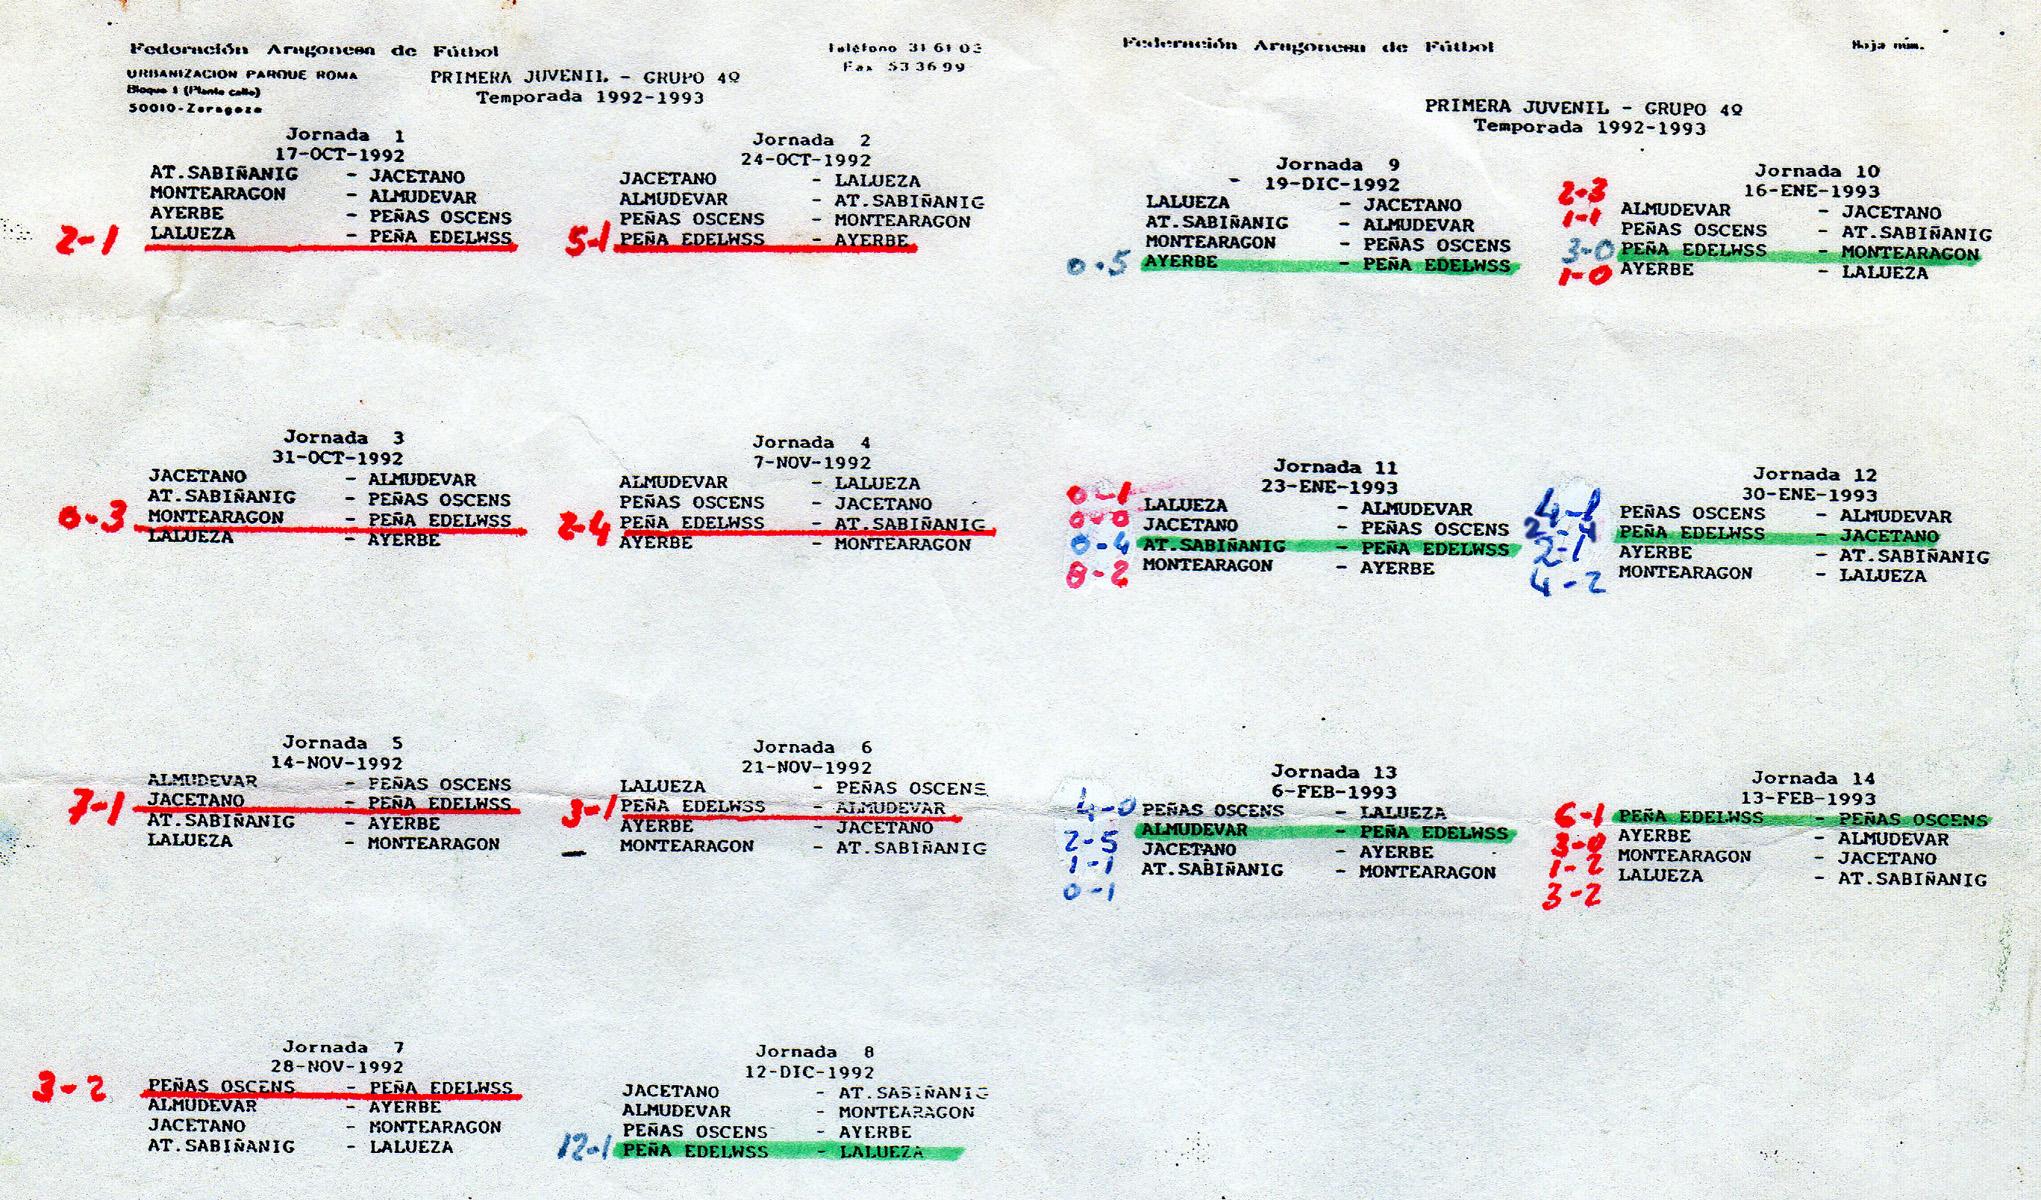 Federación Aragonesa de Fútbol
URBANIZACIÓN PARQUE ROMA
Bloque 1 (Planta calle)
50010-Zaragoza
Teléfono 31 61 03
Fax 53 36 99
PRIMERA JUVENIL - GRUPO 4º
Temporada 1992-1993
Jornada 1
17-OCT-1992
AT.SABIÑANIG - JACETANO
MONTEARAGON - ALMUDEVAR
AYERBE - PEÑAS OSCENS
2-1 LALUEZA - PEÑA EDELWSS
Jornada 2
24-OCT-1992
JACETANO - LALUEZA
ALMUDEVAR - AT.SABIÑANIG
PEÑAS OSCENS - MONTEARAGON
5-1 PEÑA EDELWSS - AYERBE
Jornada 3
31-OCT-1992
JACETANO - ALMUDEVAR
AT.SABIÑANIG - PEÑAS OSCENS
0-3 MONTEARAGON - PEÑA EDELWSS
LALUEZA - AYERBE
Jornada 4
7-NOV-1992
ALMUDEVAR - LALUEZA
PEÑAS OSCENS - JACETANO
2-4 PEÑA EDELWSS - AT.SABIÑANIG
AYERBE - MONTEARAGON
Jornada 5
14-NOV-1992
ALMUDEVAR - PEÑAS OSCENS
7-1 JACETANO - PEÑA EDELWSS
AT.SABIÑANIG - AYERBE
LALUEZA - MONTEARAGON
Jornada 6
21-NOV-1992
LALUEZA - PEÑAS OSCENS
3-1 PEÑA EDELWSS - ALMUDEVAR
AYERBE - JACETANO
MONTEARAGON - AT.SABIÑANIG
Jornada 7
28-NOV-1992
3-2 PEÑAS OSCENS - PEÑA EDELWSS
ALMUDEVAR - AYERBE
JACETANO - MONTEARAGON
AT.SABIÑANIG - LALUEZA
Jornada 8
12-DIC-1992
JACETANO - AT.SABIÑANIG
ALMUDEVAR - MONTEARAGON
PEÑAS OSCENS - AYERBE
12-1 PEÑA EDELWSS - LALUEZA
Federación Aragonesa de Fútbol
Hoja núm.
PRIMERA JUVENIL - GRUPO 4º
Temporada 1992-1993
Jornada 9
19-DIC-1992
LALUEZA - JACETANO
AT.SABIÑANIG - ALMUDEVAR
MONTEARAGON - PEÑAS OSCENS
0-5 AYERBE - PEÑA EDELWSS
Jornada 10
16-ENE-1993
2-3 ALMUDEVAR - JACETANO
1-1 PEÑAS OSCENS - AT.SABIÑANIG
3-0 PEÑA EDELWSS - MONTEARAGON
1-0 AYERBE - LALUEZA
Jornada 11
23-ENE-1993
0-1 LALUEZA - ALMUDEVAR
0-0 JACETANO - PEÑAS OSCENS
0-4 AT.SABIÑANIG - PEÑA EDELWSS
8-2 MONTEARAGON - AYERBE
Jornada 12
30-ENE-1993
4-1 PEÑAS OSCENS - ALMUDEVAR
2-4 PEÑA EDELWSS - JACETANO
2-1 AYERBE - AT.SABIÑANIG
4-2 MONTEARAGON - LALUEZA
Jornada 13
6-FEB-1993
4-0 PEÑAS OSCENS - LALUEZA
2-5 ALMUDEVAR - PEÑA EDELWSS
1-1 JACETANO - AYERBE
0-1 AT.SABIÑANIG - MONTEARAGON
Jornada 14
13-FEB-1993
6-1 PEÑA EDELWSS - PEÑAS OSCENS
3-0 AYERBE - ALMUDEVAR
1-2 MONTEARAGON - JACETANO
3-2 LALUEZA - AT.SABIÑANIG